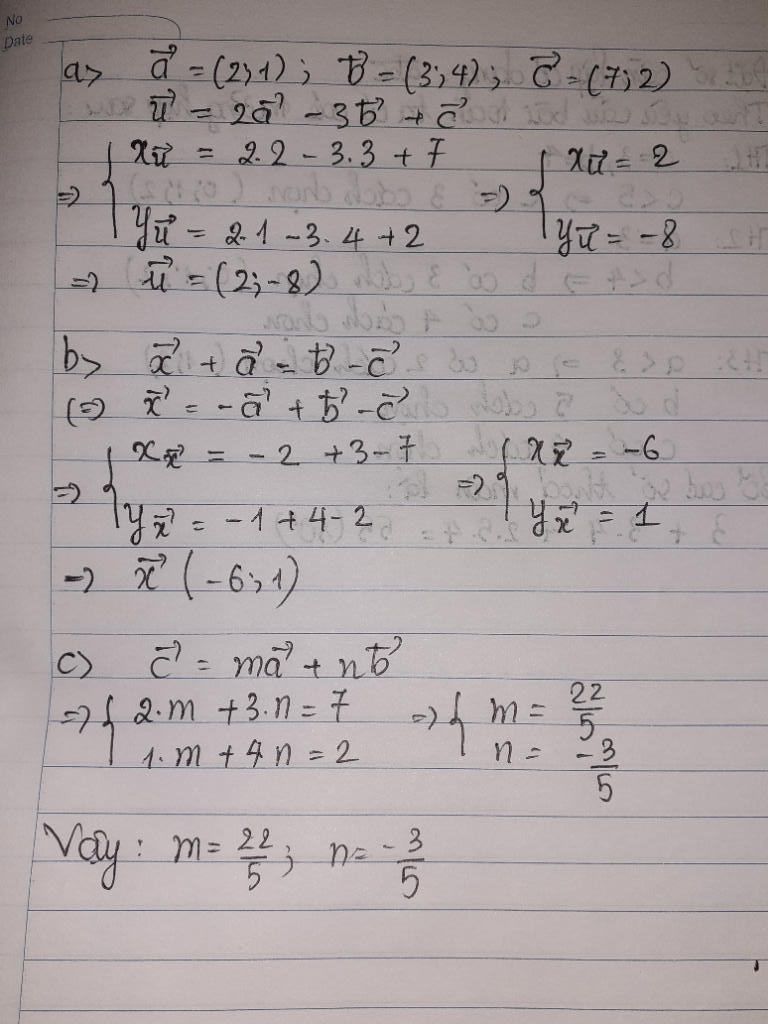 No
Date
a> a⃗ = (2;1); b⃗ = (3;4); c⃗ = (7;2)
u⃗ = 2a⃗ - 3b⃗ + c⃗
=> { x_u⃗ = 2.2 - 3.3 + 7 => { x_u⃗ = 2
y_u⃗ = 2.1 - 3.4 + 2 y_u⃗ = -8
=> u⃗ = (2;-8)
b> x⃗ + a⃗ = b⃗ - c⃗
(=> x⃗ = -a⃗ + b⃗ - c⃗
=> { x_x⃗ = -2 + 3 - 7 => { x_x⃗ = -6
y_x⃗ = -1 + 4 - 2 y_x⃗ = 1
=> x⃗ (-6;1)
c> c⃗ = ma⃗ + nb⃗
=> { 2.m + 3.n = 7 => { m = 22/5
1.m + 4.n = 2 n = -3/5
Vậy: m = 22/5; n = -3/5